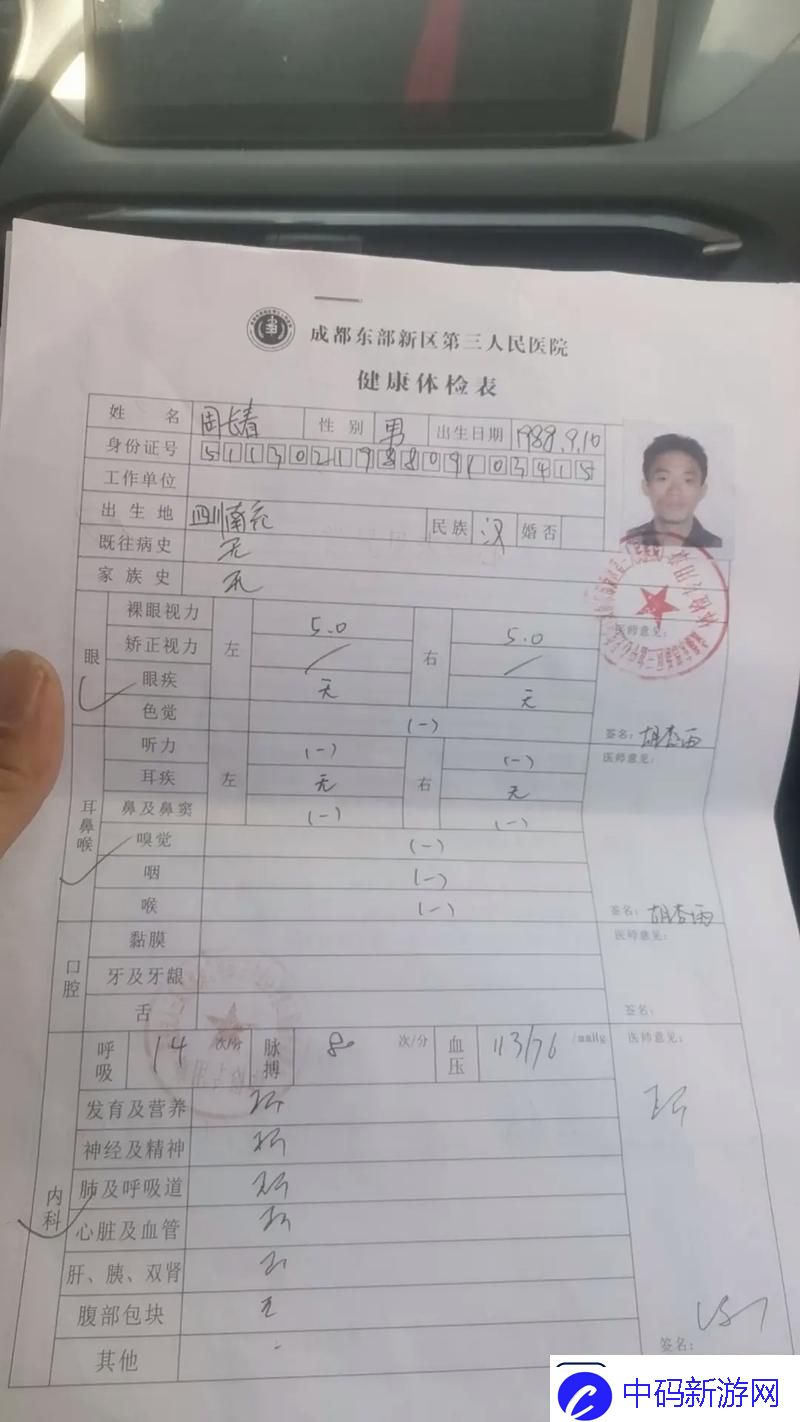 成都东部新区第三人民医院
健康体检表
姓 名 周长春 性 别 男 出生日期 1988.9.10
身份证号 511302198809103415
工作单位
出 生 地 四川南充 民族 汉 婚否
既往病史 无
家 族 史 无
眼
裸眼视力 左 5.0 右 5.0 医师意见:
矫正视力 / /
眼疾 无 无
色觉 (-) 签名:胡杏雨
耳鼻喉
听力 左 (-) 右 (-) 医师意见:
耳疾 无 无
鼻及鼻窦 (-) (-)
嗅觉 (-)
咽 (-)
喉 (-) 签名:胡杏雨
口腔
黏膜 医师意见:
牙及牙龈
舌 签名:
内科
呼吸 14 次/分 脉搏 80 次/分 血压 113/76 /mmHg 医师意见:
发育及营养
神经及精神
肺及呼吸道
心脏及血管
肝、胰、双肾
腹部包块 无
其他 -
签名:
中码新游网